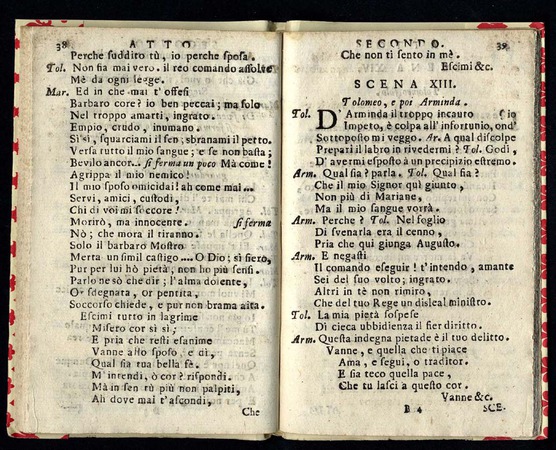 38 ATTO
Perche suddito tù, io perche sposa.
Tol. Non fia mai vero. il reo comando assolve
Mè da ogni legge.
Mar. Ed in che mai t'offesi
Barbaro core? io ben peccai; ma solo
Nel troppo amarti, ingrato.
Empio, crudo, inumano.
Sì sì, squarciami il sen; sbranami il petto.
Versa tutto il mio sangue; e se non basta;
Bevilo ancor... si ferma un poco Mà come!
Agrippa il mio nemico!
Il mio sposo omicida! ah come mai...
Servi, amici, custodi,
Chi di voi mi soccore!
Morirò, ma innocente. si ferma
Nò; che mora il tiranno.
Solo il barbaro Mostro
Merta un simil castigo.... O Dio; sì fiero,
Pur per lui hò pietà; non hò più sensi.
Parlo ne sò che dir; l'alma dolente,
Or sdegnata, or pentita,
Soccorso chiede, e pur non brama aita.
Escimi tutto in lagrime
Misero cor sì sì;
E pria che resti esanime
Vanne allo sposo, e dì,
Qual fia tua bella fè.
M'intendi, ò cor? rispondi.
Mà in sen tù più non palpiti,
Ah dove mai t'ascondi,
Che
SECONDO. 39
Che non ti sento in mè.
Escimi &c.
SCENA XIII.
Tolomeo, e poi Arminda.
Tol. D'Arminda il troppo incauto
Impeto, è colpa all'infortunio, ond'io
Sottopor mi veggo. Ar. A qual discolpe
Prepari il labro in rivedermi? Tol. Godi,
D'avermi esposto à un precipizio estremo.
Arm. Qual fia? parla. Tol. Qual fia?
Che il mio Signor quì giunto,
Non più di Mariane,
Ma il mio sangue vorrà.
Arm. Perche? Tol. Nel foglio
Di svenarla era il cenno,
Pria che quì giunga Augusto.
Arm. E negasti
Il comando eseguir! t'intendo, amante
Sei del suo volto; ingrato.
Altri in tè non rimiro,
Che del tuo Rege un disleal ministro.
Tol. La mia pietà sospese
Di cieca ubbidienza il fier diritto.
Arm. Questa indegna pietade è il tuo delitto.
Vanne, e quella che ti piace
Ama, e segui, o traditor.
E sia teco quella pace,
Che tu lasci a questo cor.
Vanne &c.
B 4 SCE-